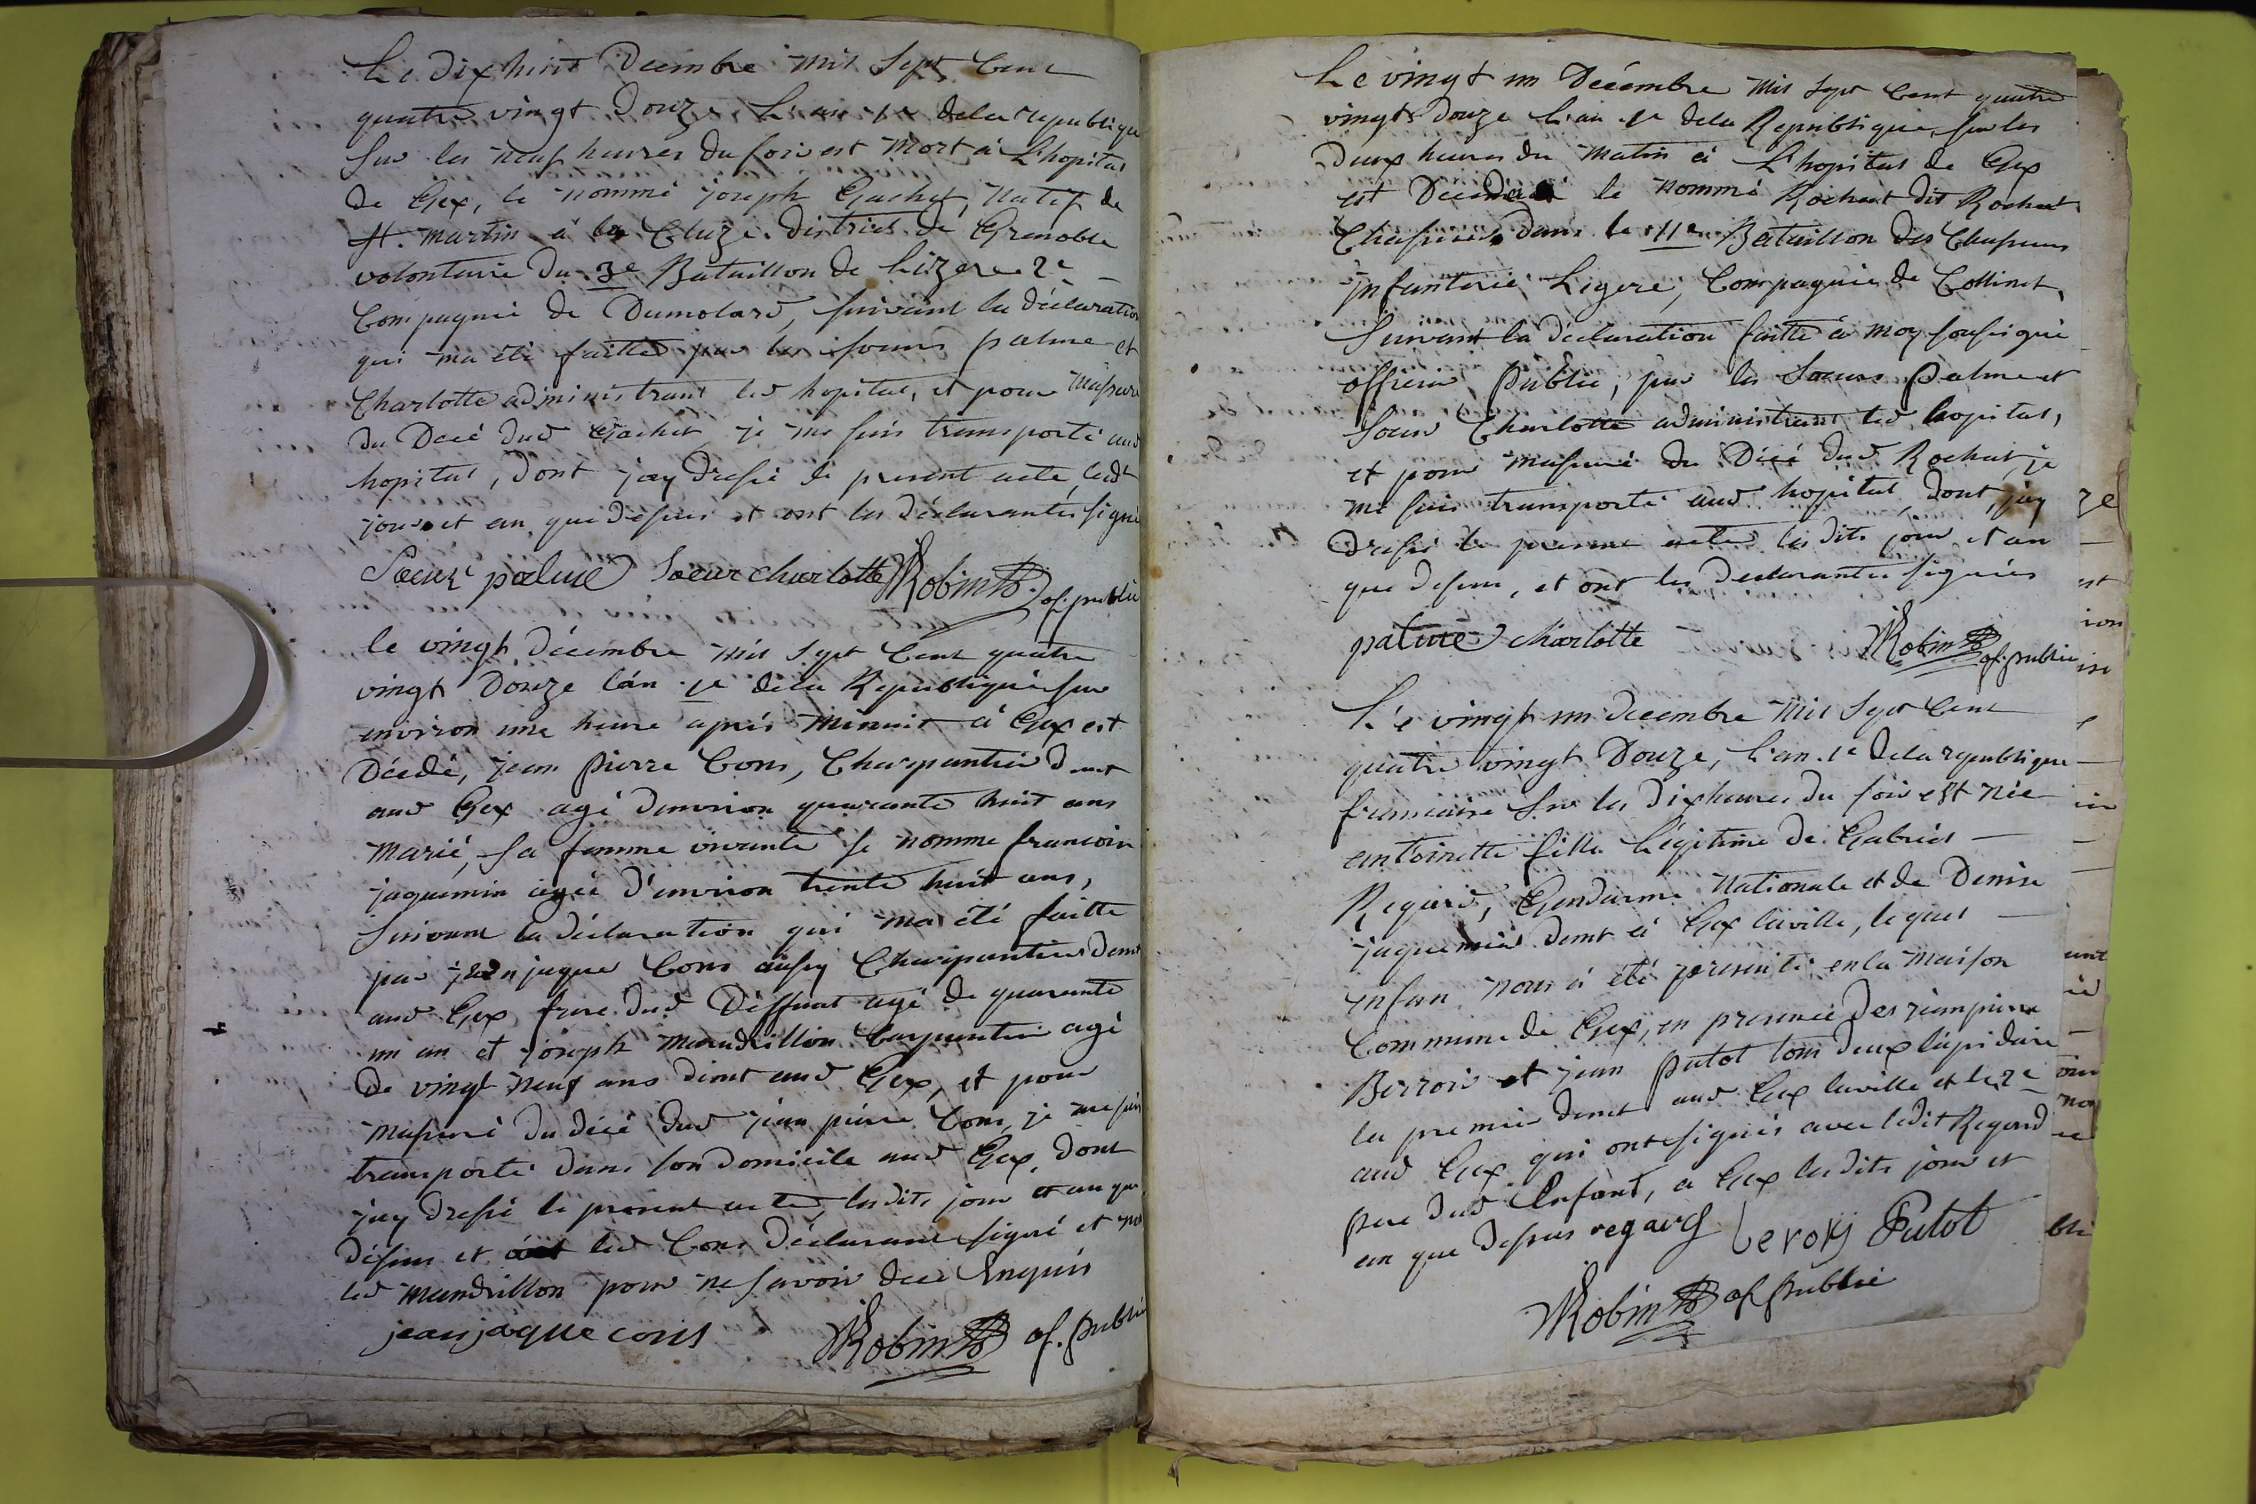 Le dix huit Decembre mil Sept Cent
quatre vingt Douze L'an 1e dela republique
Sur les neuf heures du soir est mort à L'hopital
de Gex, le nommé joseph Gachet, natif de
St. martin à la Cluze District de Grenoble
volontaire du 3e Bataillon de Lizere 2e
Compagnie de Dumolard, suivant la déclaration
qui ma été faitte par les soeurs palme et
Charlotte administrant led hopital, et pour massurer
du Decé dud Gachet je me suis transporté aud
hopital, dont jay dressé le present acte, lesdt
jour et an que dessus et ont les déclarantes signé
Soeur palme Soeur charlotte Robin of. public
le vingt décembre mil Sept Cent quatre
vingt Douze lán 1e dela Republique sur
environ une heure après minuit à Gex est
Décédé, jean pierre Cons, Charpentier demt
aud Gex agé denviron quarante huit ans
marié, sa femme vivante se nomme francoise
jaquemin agée d'environ trente huit ans,
Suivant la déclaration qui ma été faitte
par jean jaque Cons aussy Charpentier demt
aud Gex frere dud Déffunt agé de quarante
un an et joseph mandrillon Carpentier agé
de vingt neuf ans demt aud Gex, et pour
massuré du décé dud jean pierre Cons, je me suis
transporté dans son domicile aud Gex, dont
jay dressé le present acte, lesdits jour et an que
dessus et led Cons déclarant signé et non
led mandrillon pour ne savoir dece Enquis
jean jaque cons Robin of. public
Le vingt un Décembre mil Sept Cent quatre
vingts douze l'an 1e dela Republique, sur les
deux heures du matin à L'hopital de Gex
est Decedé le nommé Rochat dit Rochat
Chasseur dans le 11e Bataillon des Chasseurs
jnfanterie Ligere, Compagnie de Collinet,
Suivant la déclaration faitte à moy soussigné
officier public, par les Soeurs palme et
Soeur Charlotte administrant led hopital,
et pour massuré du Décé dud Rochat, je
me suis transporté aud hopital, dont jay
dressé le present acte les dits jour et an
que dessus, et ont les declarantes signées
palme charlotte Robin of. public
Le vingt un decembre mil Sept Cent
quatre vingt Douze, l'an 1e dela republique
francaise Sur les dix heures du soir est née
antoinette fille Légitime de Gabriel
Regard, Gendarme Nationale et de Denise
jaquemin demt à Gex laville, lequel
jnfan nous à été presenté en la maison
Commune de Gex, en presence des jean pierre
Berroi et jean putot tous deux lapidaire
le premier demt aud Gex laville et le 2e
aud Gex qui ont signés avec ledit Regard
pere dud Enfant, a Gex lesdits jour et
an que dessus regard Leroy Putot
Robin of public